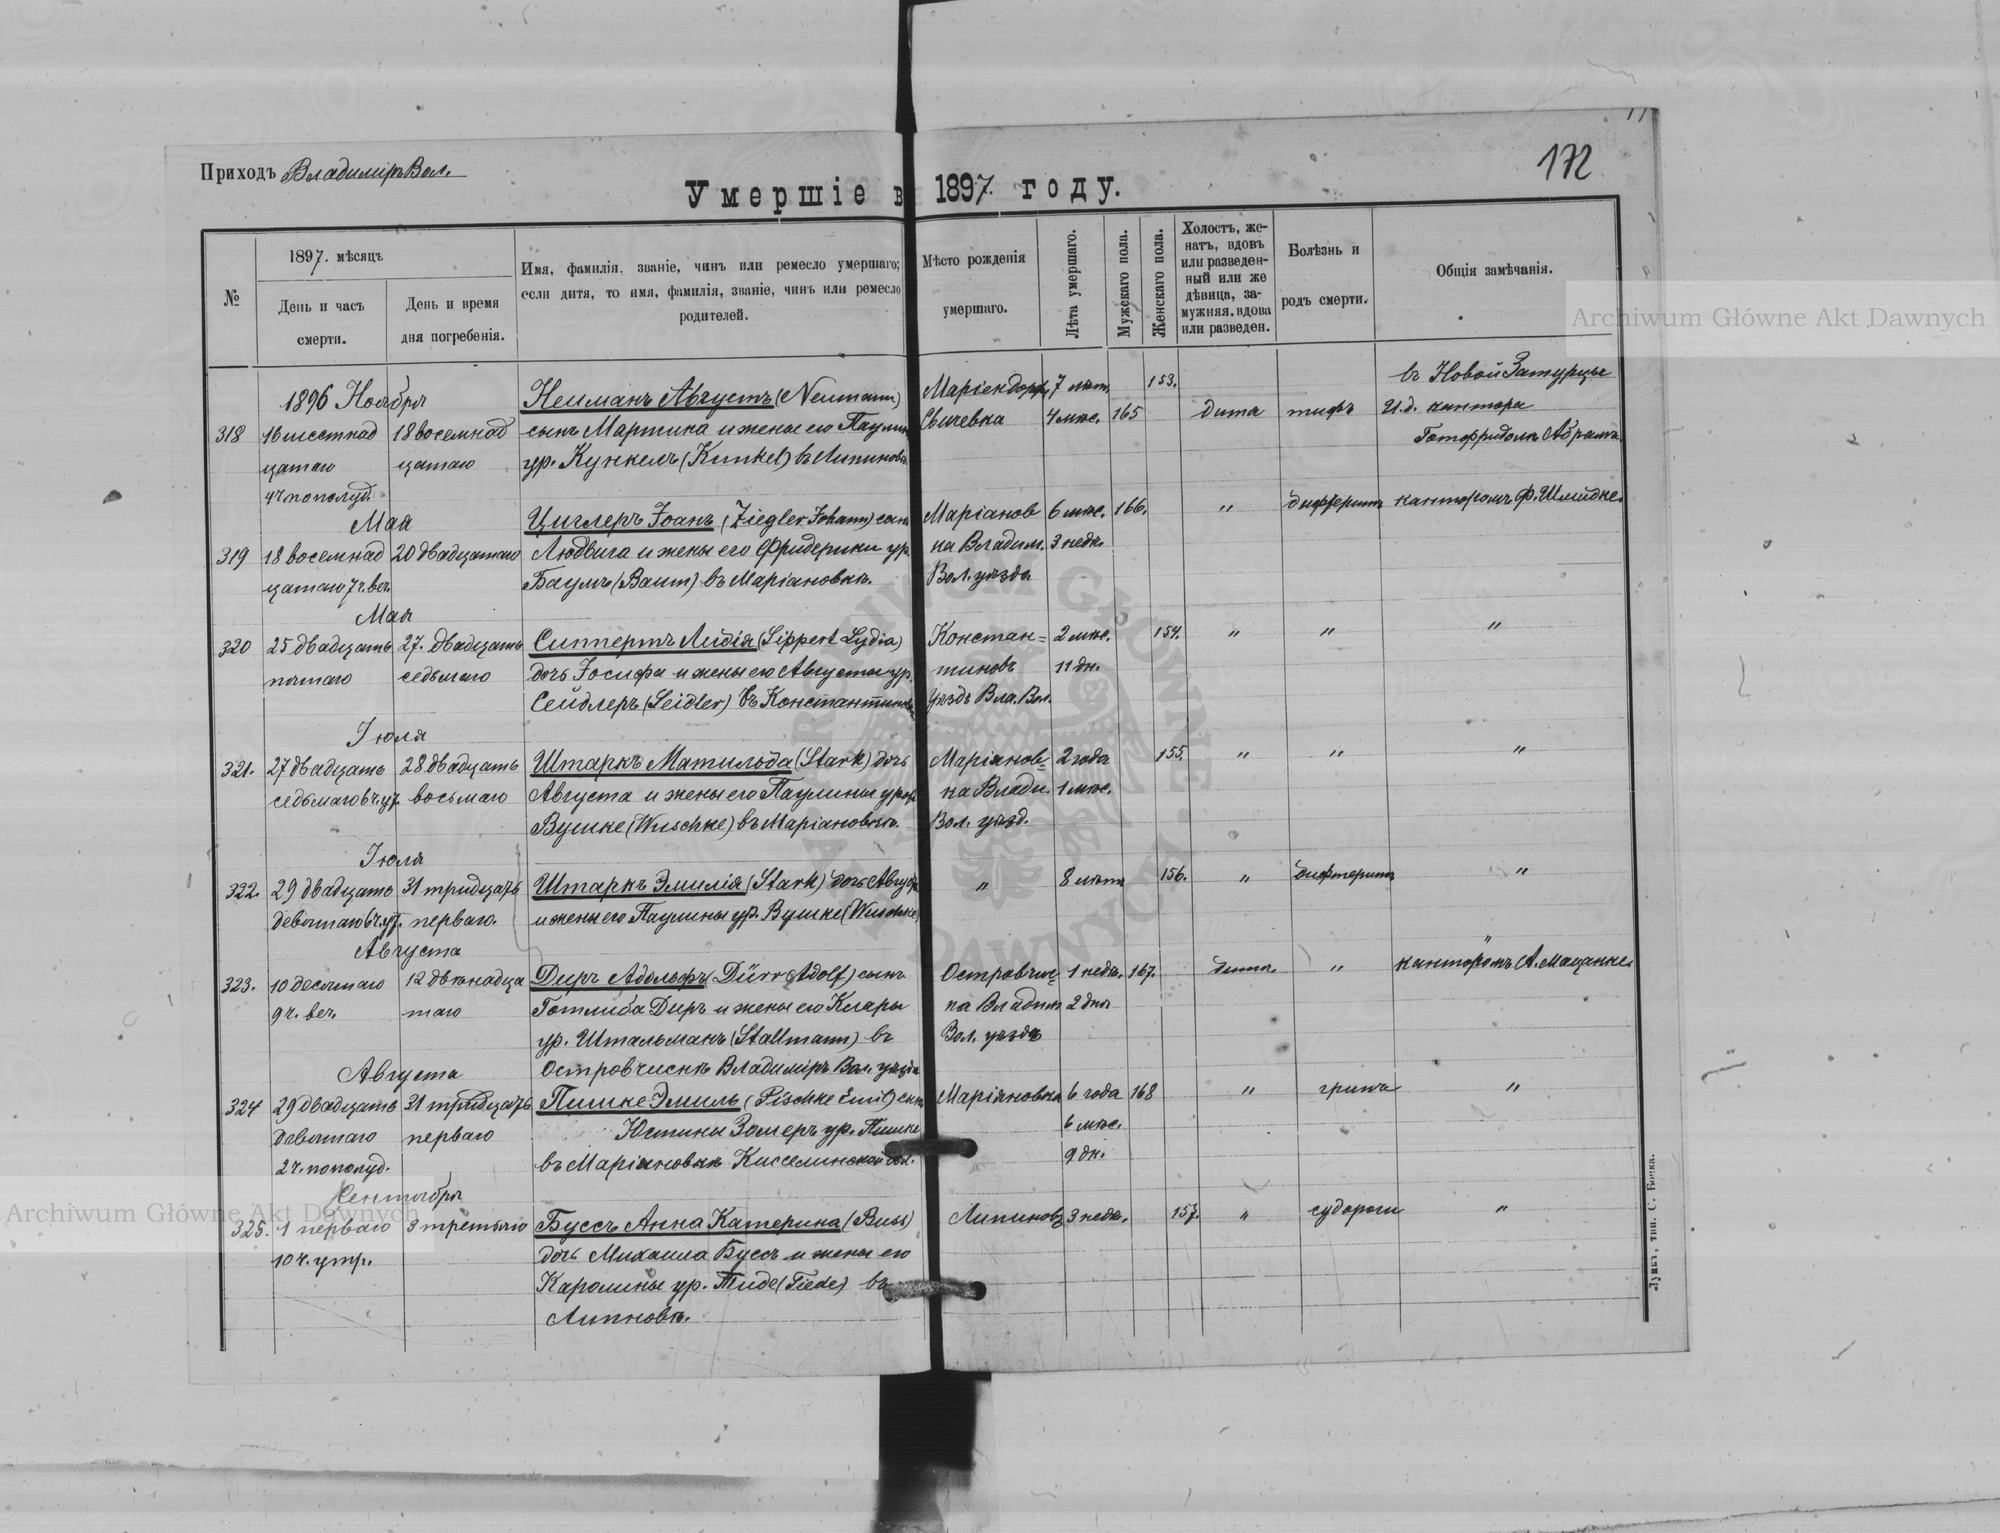 11
172
Приходъ Владиміръ Вол.
Умершіе в 1897 году.
№
1897. мѣсяцъ
День и часъ смерти.
День и время дня погребенія.
Имя, фамилія, званіе, чинъ или ремесло умершаго;
если дитя, то имя, фамилія, званіе, чинъ или ремесло
родителей.
Мѣсто рожденія
умершаго.
Лѣта умершаго.
Мужскаго пола.
Женскаго пола.
Холостъ, же-
натъ, вдовъ
или разведен-
ный или же
дѣвица, за-
мужняя, вдова
или разведен.
Болѣзнь и
родъ смерти.
Общія замѣчанія.
1896 Ноября Нейманъ Августъ (Neumann) Маріендорфъ 7 лѣтъ 153. въ Новой Затурцы
318 16 шестнад 18 восемнад сынъ Мартина и жены его Паулин Свичевка 4 мѣс. 165 дитя тифъ И.д. кантора
цатаго цатаго ур. Кункель (Kunkel) въ Липиновк. Готфридомъ Абрамъ
4 ч. пополуд.
Мая Циглеръ Іоанъ (Ziegler Johann) сынъ Маріанов 6 мѣс. 166. " дифтеритъ канторомъ Ф. Шмидке.
319 18 восемнад 20 двадцатаго Людвига и жены его Фридерики ур. ка Владим. 3 недѣ.
цатаго 7 ч. веч. Баумъ (Baum) въ Маріановкѣ. Вол. уѣзда
Мая
320 25 двадцать 27. двадцать Сиппертъ Лидія (Sippert Lydia) Констан= 2 мѣс. 154. " " "
пятаго седьмаго дочь Іосифа и жены его Августы ур. тиновъ 11 дн.
Сейдлеръ (Seidler) въ Константиновк Уѣздъ Вла. Вол.
Іюля
321. 27 двадцать 28 двадцать Штаркъ Матильда (Stark) дочь Маріянов= 2 года 155. " " "
седьмаго 6 ч. ут. восьмаго Августа и жены его Паулины урож. ка Влади. 1 мѣс.
Вушке (Wuschke) въ Маріановкѣ. Вол. уѣзд.
Іюля
322. 29 двадцать 31 тридцать Штаркъ Эмилія (Stark) дочь Август " 8 лѣтъ 156. " дифтеритъ "
девятаго 6 ч. ут. перваго. и жены его Паулины ур. Вушке (Wuschke)
Августа "
323. 10 десятаго 12 двѣнадца Диръ Адольфъ (Dürr Adolf) сынъ Островчис= 1 недѣ. 167. дитя. " канторомъ А. Мацанке.
9 ч. веч. таго Готлиба Диръ и жены его Клары ка Владим 2 дня
ур. Штальманъ (Stallmann) въ Вол. уѣзда
Островчискѣ Владиміръ Вол. уѣзда
Августа
324 29 двадцать 31 тридцать Пишке Эмиль (Pischke Emil) сынъ Маріяновка 6 года 168 " грипъ "
девятаго перваго Юстины Зомеръ ур. Пишке 6 мѣс.
2 ч. пополуд. въ Маріяновкѣ Киселинской вол. 9 дн.
Сентября
325. 1 перваго 3 третьяго Буссъ Анна Катерина (Buss) Липиновъ 3 недѣ. 157. " судороги "
10 ч. утр. дочь Михаила Буссъ и жены его
Каролины ур. Тиде (Tiede) въ
Липновк.
Луцкъ, тип. С. Бонка.
Archiwum Główne Akt Dawnych
Archiwum Główne Akt Dawnych
ARCHIWUM GŁÓWNE AKT DAWNYCH